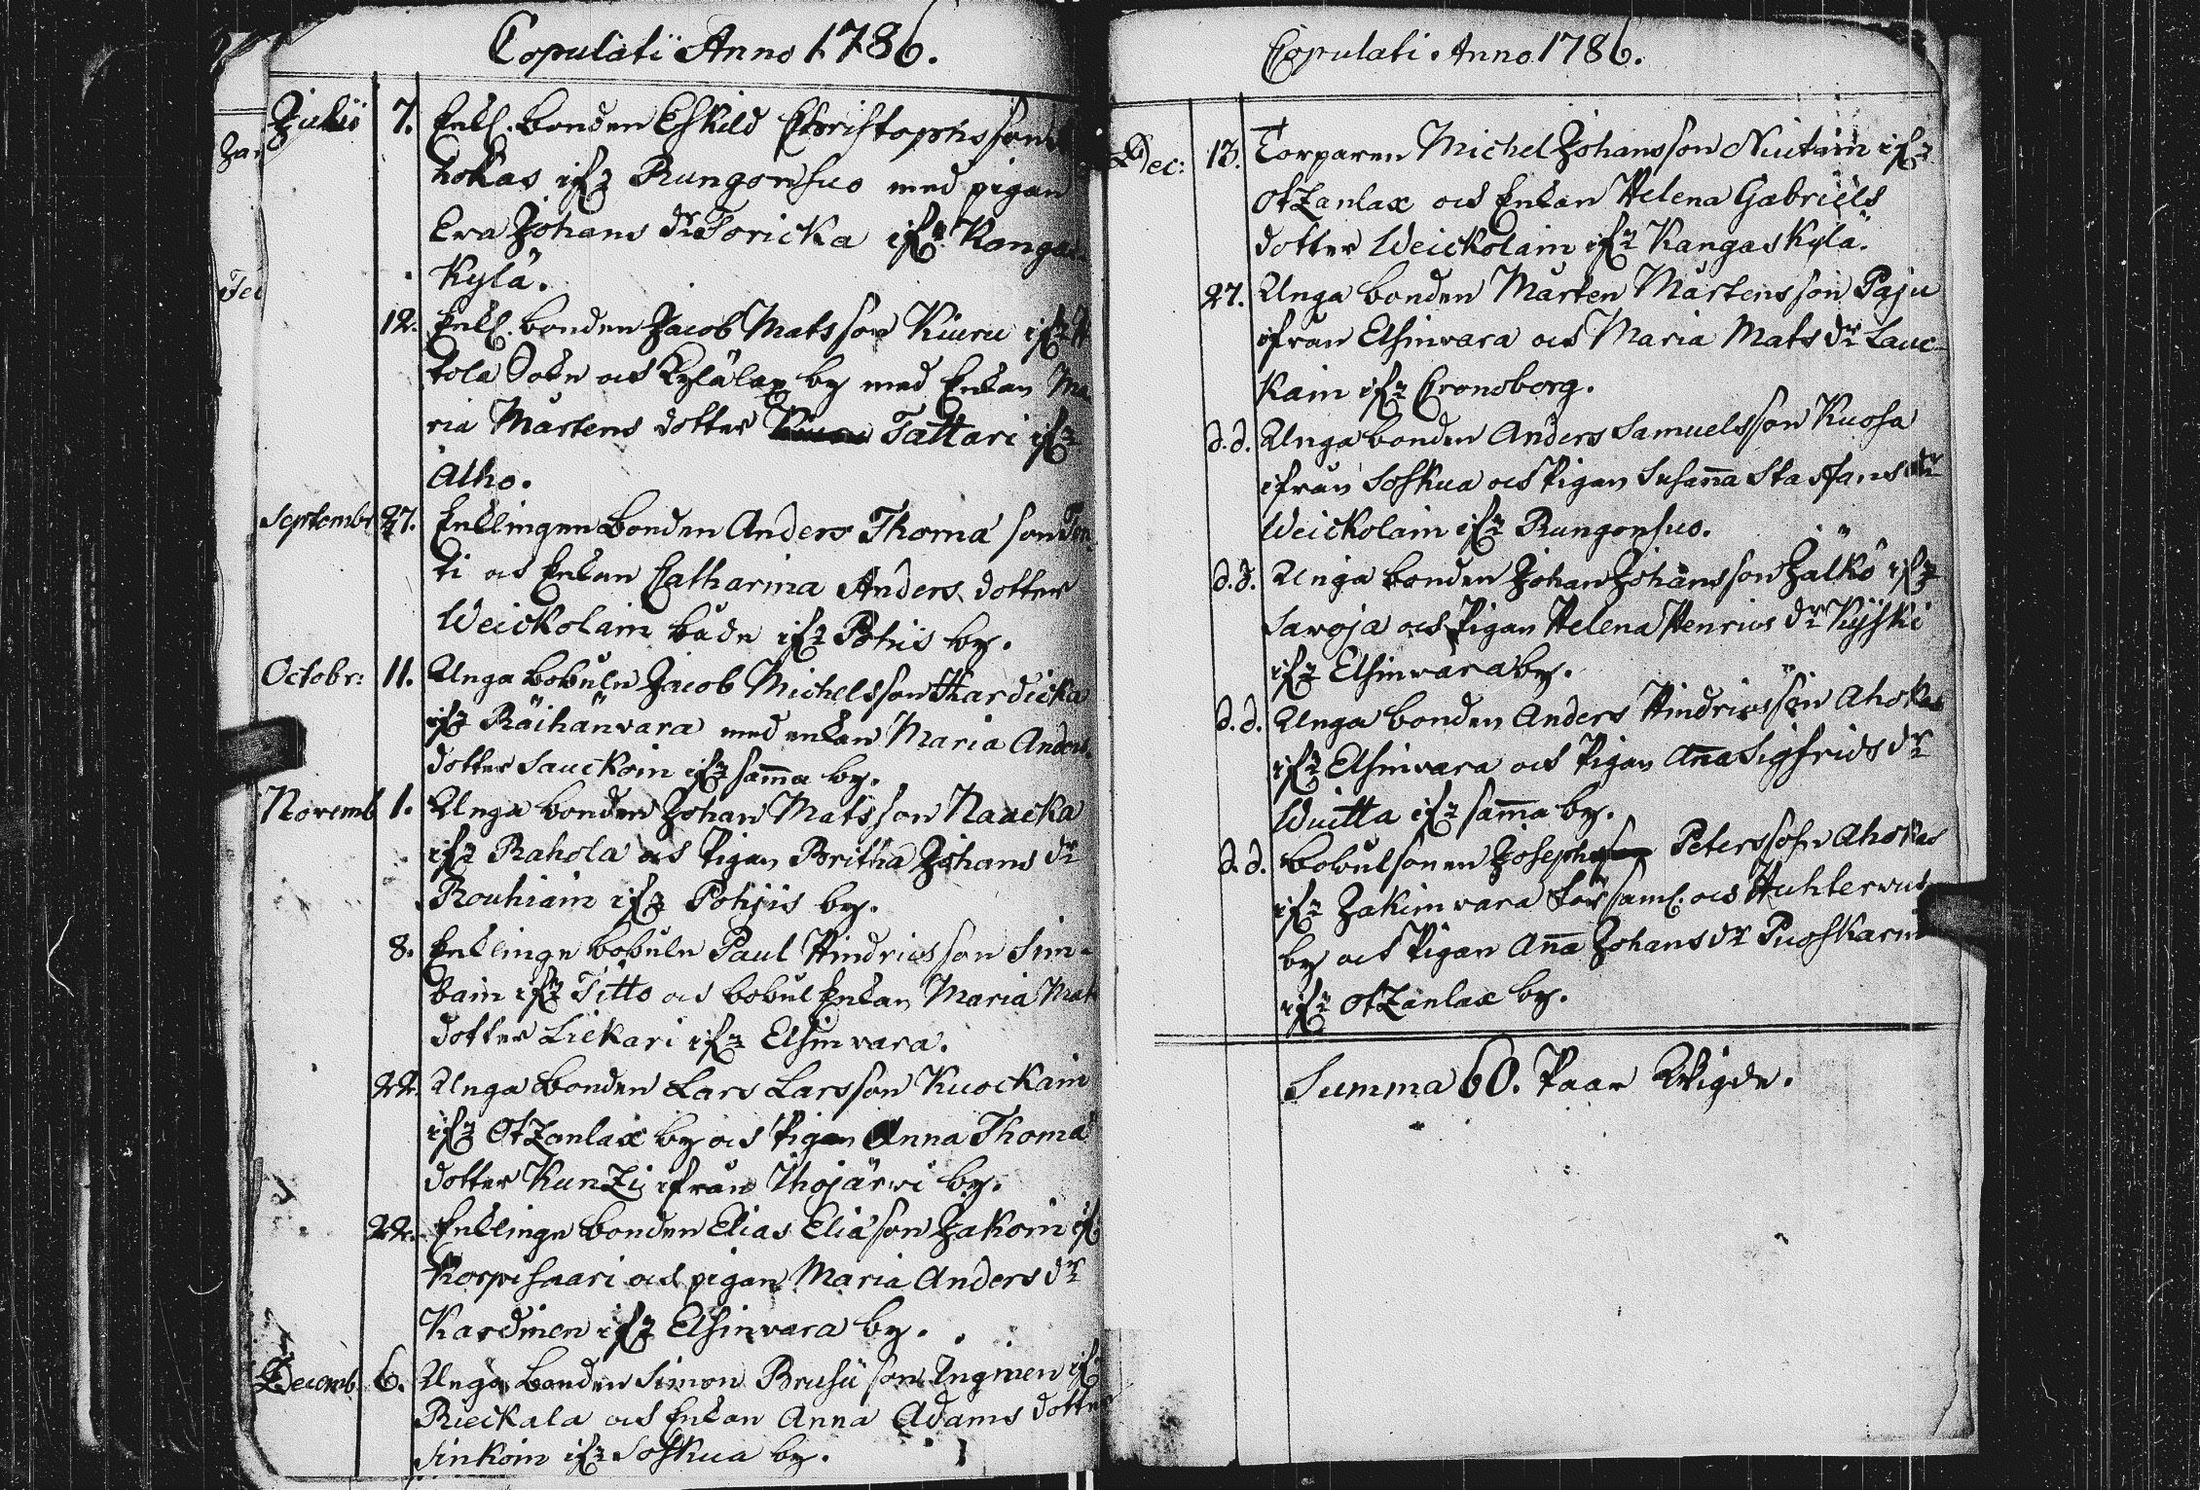 Copulati Anno 1786.
Julii 7. Enkl. bonden Eskild Christophsson
hokas ifr Rungonsuo med pigan
Eva Johans dr Toricka ifr Kangas
Kylä.
12. Enkl. bonden Jacob Matsson Kiuru ifr
tola Sokn och Kylälax by med Enkan Ma
ria Mårtens dotter Tattari ifr
Alho.
Septembr 27. Enklingen bonden Anders Thomæson
ti och Enkan Catharina Anders dotter
Weickolain både ifr Pohiis by.
Octobr: 11. Unga bobuln Jacob Michelsson Hardicka
ifr Räihänvara med enkan Maria Anders
dotter Sauckoin ifr samma by.
Novemb 1. Unga bonden Johan Matsson Naacka
ifr Rahola och Pigan Britha Johans dr
Rouhiain ifr Pohjis by.
8. Enklinge bobuln Paul Hindricsson Sim-
bain ifr Titto och bobul Enkan Maria Mats
dotter Liekari ifr Elsinvara.
22. Unga bonden Lars Larsson Kuockain
ifr Otzanlax by och Pigan Anna Thomæ
dotter Kunzi ifrån Ihojärvi by.
22. Enklinge bonden Elias Eliæson Jakoin ifr
Korpisaari och pigan Maria Anders dr
Kardinen ifr Elsinvara by.
Decemb. 6. Unga bonden Simon Brusiison Inginen ifr
Rieckala och Enkan Anna Adams dotter
Sinkoin ifr Soskua by.
Copulati Anno 1786.
Dec: 13. Torparen Michel Johansson Niutain ifr
Otzanlax och Enkan Helena Gabriels
dotter Weickolain ifr Kangaskylä.
27. Unga bonden Mårten Mårtensson Paju
ifrån Elsinvara och Maria Mats dr Lauc-
kain ifr Cronoborg.
d.d. Unga bonden Anders Samuelsson Kuosa
ifrån Soskua och Pigan Susanna Staffans dr
Weickolain ifr Rungonsuo.
d.d. Unga bonden Johan Johansson Jälkö ifr
Savoja och Pigan Helena Henrics dr Kyski
ifr Elsinvara by.
d.d. Unga bonden Anders Hindricsson Ahokas
ifr Elsinvara och Pigan Anna Sigfrids dr
Wuitta ifr samma by.
d.d. bobulsonen Joseph Petersson Ahokas
ifr Jakimvara församl. och Huhtervus
by och Pigan Anna Johans dr Puoskarin
ifr Otzanlax by.
Summa 60. Paar Wigde.